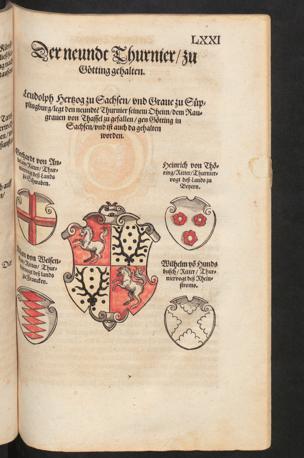 LXXI
Der neundt Thurnier/zu
Götting gehalten.
Leudolph Hertzog zu Sachsen/ vnd Graue zu Süp-
plingburg/legt den neundtē Thurnier seinem Oheim/dem Rau-
grauen von Thassel zu gefallen/gen Götting in
Sachsen/vnd ist auch da gehalten
worden.
von An-
Ritter/ Thur-
deß Lands
zu Schwaben.
Heinrich von Thö-
ring/Ritter/Thurnier-
vogt deß Lands zu
Beyern.
von Weisen-
Ritter/ Thur-
vogt deß lands
Francken.
Wilhelm vō Hunds
busch/Ritter/ Thur-
niervogt deß Rhein-
stroms.